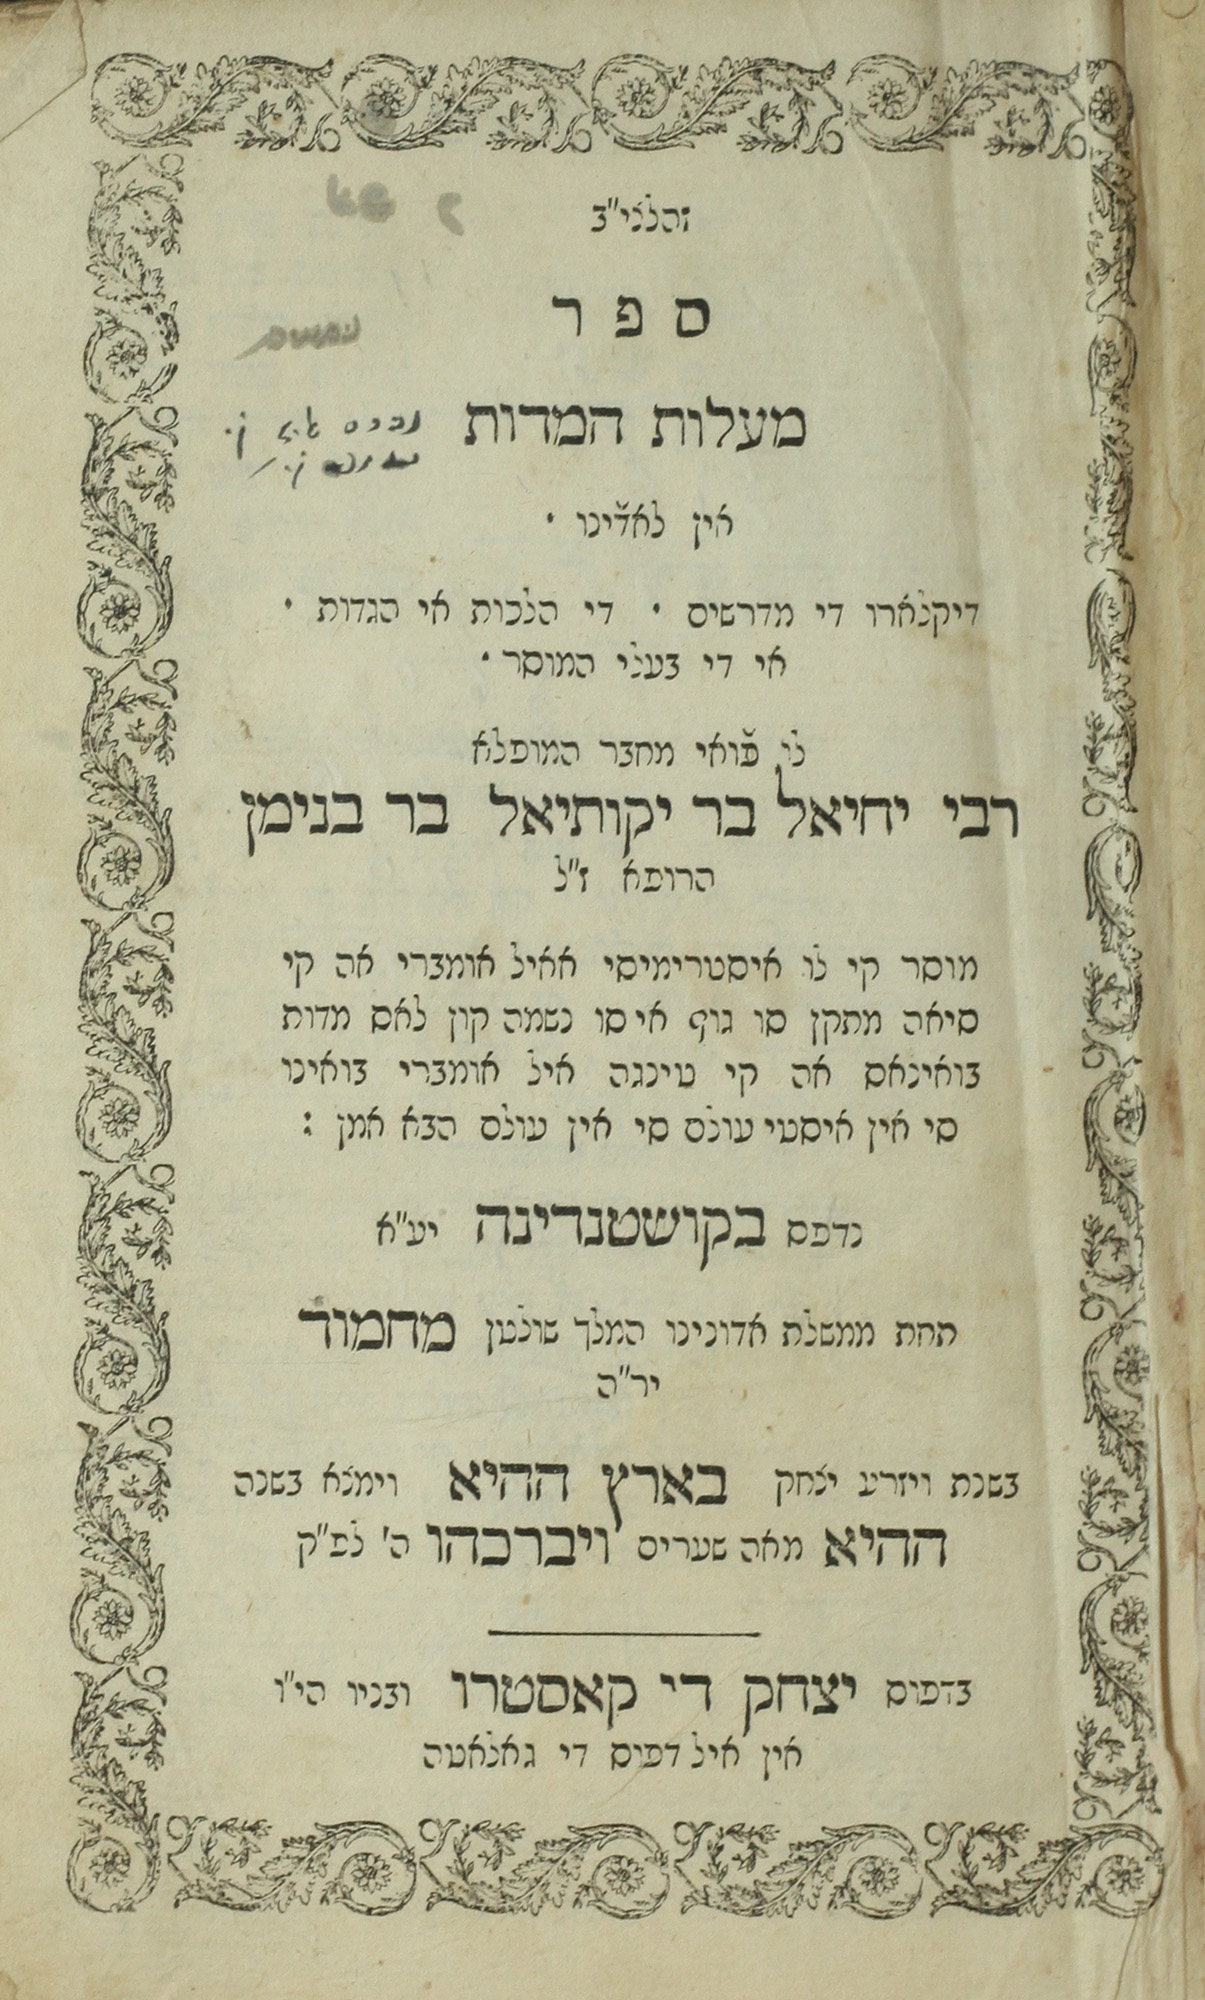 זהלני"ב
ספר
מעלות המדות
אין לאדֿינו •
דיקלארו די מדרשים • די הלכות אי הגדות •
אי די בעלי המוסר •
לו פֿואי מחבר המופלא
רבי יחיאל בר יקותיאל בר בנימן
הרופא ז"ל
מוסר קי לו איסטרימיסי אאיל אומברי אה קי
סיאה מתקן סו גוף אי סו נשמה קון לאס מדות
בואינאס אה קי טינגה איל אומברי בואינו
סי אין איסטי עולם סי אין עולם הבא אמן :
נדפס בקושטנדינה יע"א
תחת ממשלת אדונינו המלך שולטן מחמוד
יר"ה
בשנת ויזרע יצחק בארץ ההיא וימצא בשנה
ההיא מאה שערים ויברכהו ה' לפ"ק
בדפוס יצחק די קאסטרו ובניו הי"ו
אין איל דפוס די גאלאטה